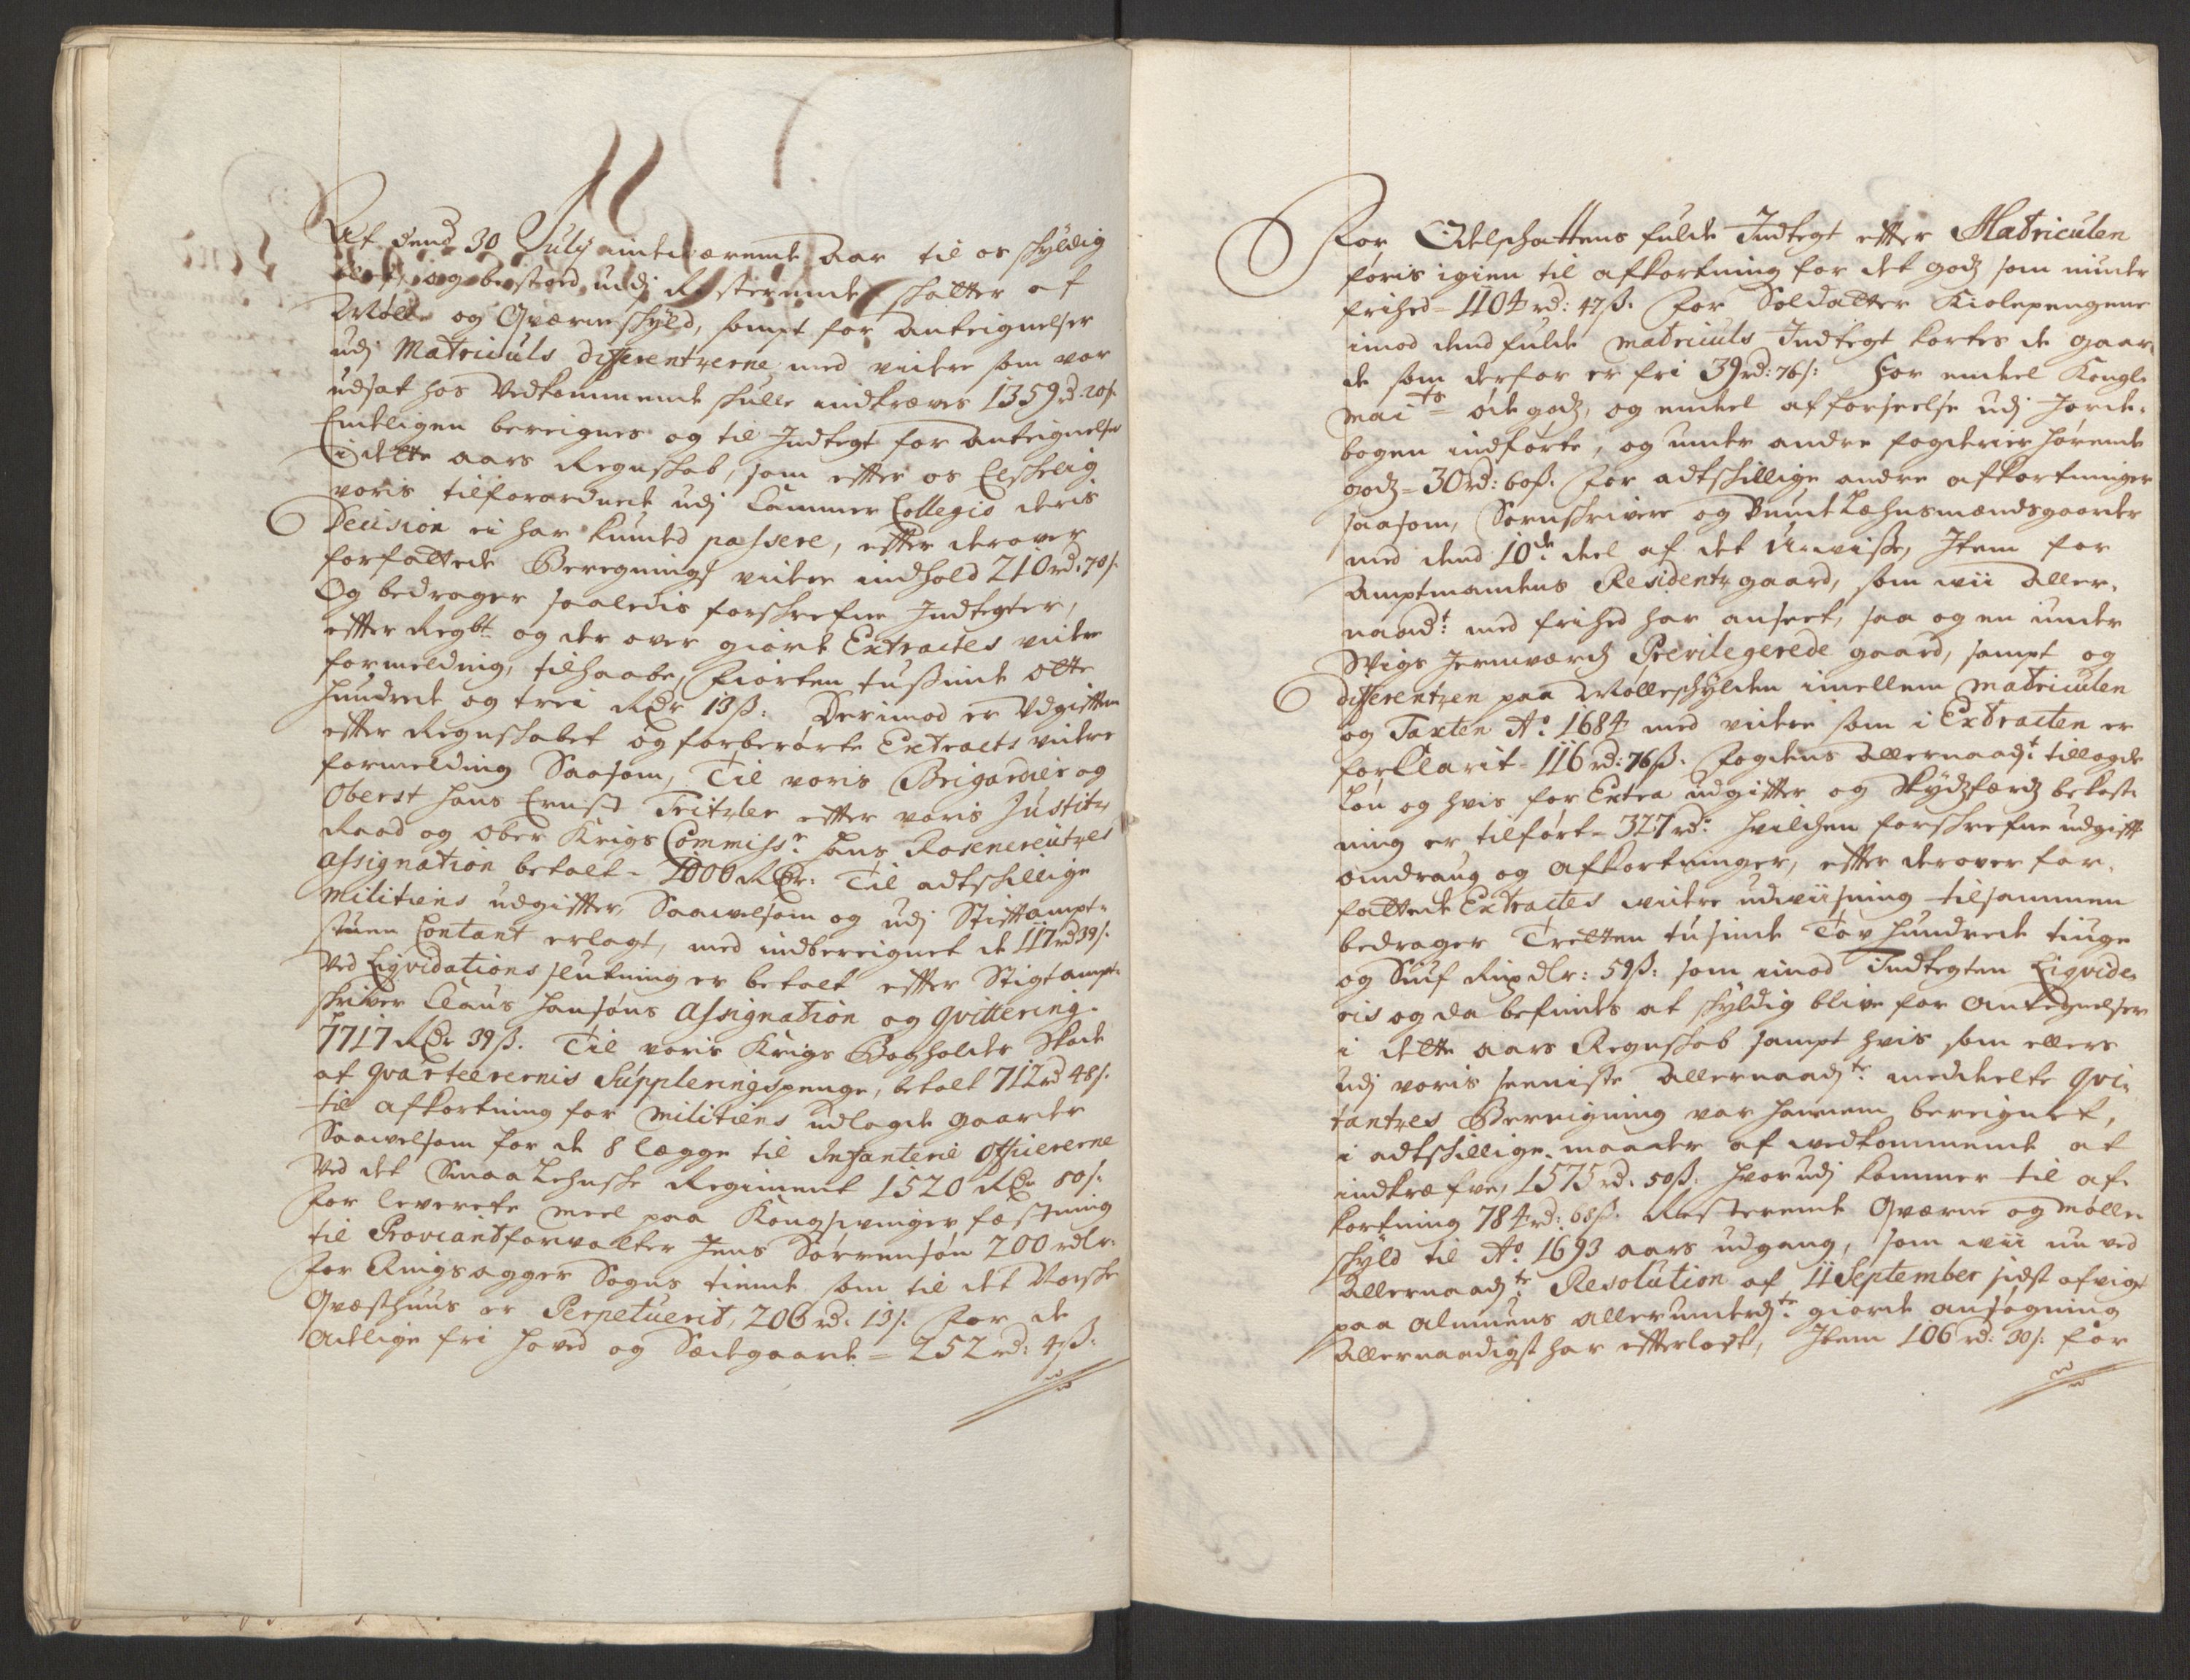 Af dend 30 July indeværende Aar til os schyldig
blef, og bestoed udj Resterende schatter af
Mølle og Qværneschyld, sampt for Anteignelser
udj Matriculs differentzerne med videre som var
udsat hos Vedkommende schulle indkræves 1359 rd 20 s:
Endeligen bereignes og til Indtegt for Anteignelser
i dette aars Regnschab, som efter os Elschelig
voris tilforordnede udj Cammer Collegio deris
Decision ei har kunded passere, efter derover
forfattede Beregnings videre indhold 210 rd. 70 s.
Og bedrager saaledis forschrefne Indtegter,
efter Regbt. og der over giorde Extractes videre
formelding, tilhaabe, Fiorten tusinde otte
hundrede og trei Rdr 13 ß: Derimod er Udgiften
efter Regnschabet og forberørte Extracts videre
formelding Saasom, Til voris Brigardier og
Oberst Hans Ernst Tritzler efter voris Justitz
Raad og Ober Krigs Commiss:r Hans Rosencreutzes
Assignation betalt = 1000 Rdr: Til adtschillige
Militiens udgifter, Saavelsom og udj Stiftampt-
stuen Contant erlagt, med indbereignet de 117 rd 39 s.
Ved Liqvidations slutning er betalt efter Stigtampt-
schriver Claus Hansøns Assignation og qvittering.
7717 Rdr 39 ß. Til voris Krigs Bogholder Skade
at Qvarteerernis Suppleringspenge, betalt 712 rd 48 s.
til afkortning for Militiens udlagde gaarder
Saavelsom for de 8 lægge til Infanterie Officererne
Ved det Smaalehnsche Regiment 1520 Rdr 80 s.
For leverede Meel paa Kongswinger fæstning
til Proviantforvalter Jens Sørrensøn 200 rdlr.
For Ringsagger Sogns tiende som til det Norsche
Qvæsthuus er Perpetuerit, 206 rd. 13 s. For de
Adelige fri hoved og Sædegaarde = 252 rd: 47 ß:
For Odelschattens fulde Indtegt efter Matriculen
føris igien til afkortning for det godz som niuder
frihed = 1104 rd: 47 ß. For Soldatter Kiolepengene
imod dend fulde Matriculs Indtegt kortes de gaar
de som derfor er fri 39 rd: 76 s: For endeel Kongl.
Maits øde godz, og endeel afforseelse udj Jorde-
bogen indførte, og under andre fogderier hørende
godz = 30 rd: 60 ß. For adtschillige andre afkortninger
saasom, Sornschriver og Bunde Læhnsmandsgaarde
med dend 10de deel af det Uvisse, Item for
Amptmandens Residentz gaard, som wii Aller-
naadt: med frihed har anseet, saa og en under
Wigs Jernværch Previlegerede gaard, sampt og
differentzen paa Mølleschylden imellem Matriculen
og Taxten Ao: 1684 med videre som i Extracten er
forklarit 116 rd: 76 ß. Fogdens Allernaadt: tillagde
Løn og hvis for Extra udgifter og Skydzferdz bekost-
ning er tilført = 327 rd: Hvilchen forschrefne udgift
omdraug og Afkortninger, efter derover for-
fattede Extractes videre udviisning tilsammen
bedrager Tretten tusinde Tov hundrede tiuge
og Siuf Rixdlr: 59 ß: som imod Indtegten Liqvide-
ris og da befindes at schyldig blive for Antegnelser
i dette aars Regnschab sampt hvis som ellers
udj voris seeniste Allernaadte: meddeelte Qvi-
tantzes Bereigning var hannem bereignet,
i adtschillige maader af wedkommende at
indkræfve, 1575 rd. 50 ß. hvorudj kommer til af-
kortning 784 rd: 68 ß. Resterende Qværne og Mølle-
schyld til Ao: 1693 aars udgang, som wii nu ved
Allernaadte: Resolution af 11 September sidst afvigt
paa Almuens Allerunderdte: giorde ansøgning
Allernaadigst har efterladt, Item 106 rd: 30 s: for